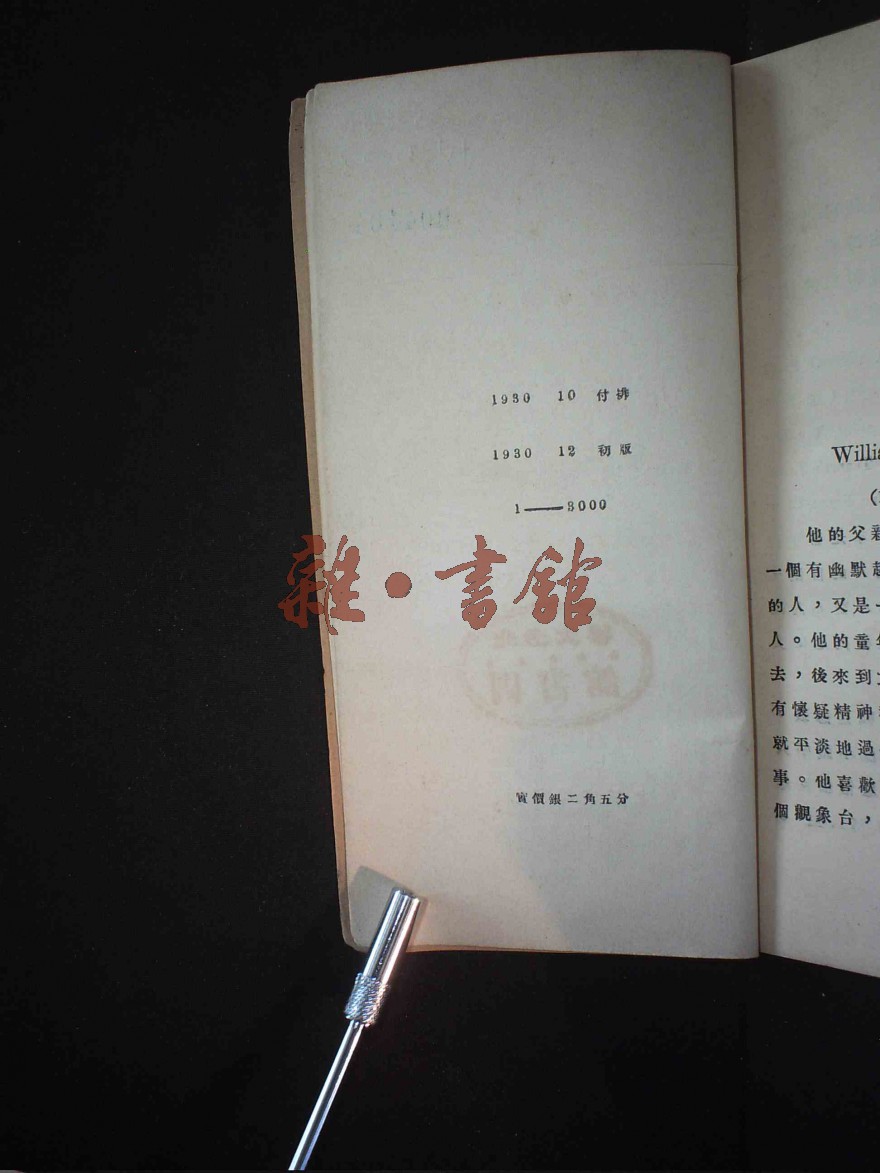 1930 10 付排
1930 12 初版
1——3000
雜·書館
實價銀二角五分
Willia
(
他的父親
一個有幽默趣
的人，又是一
人。他的童年
去，後來到
有懷疑精神
就平淡地過
事。他喜歡
個觀象台，